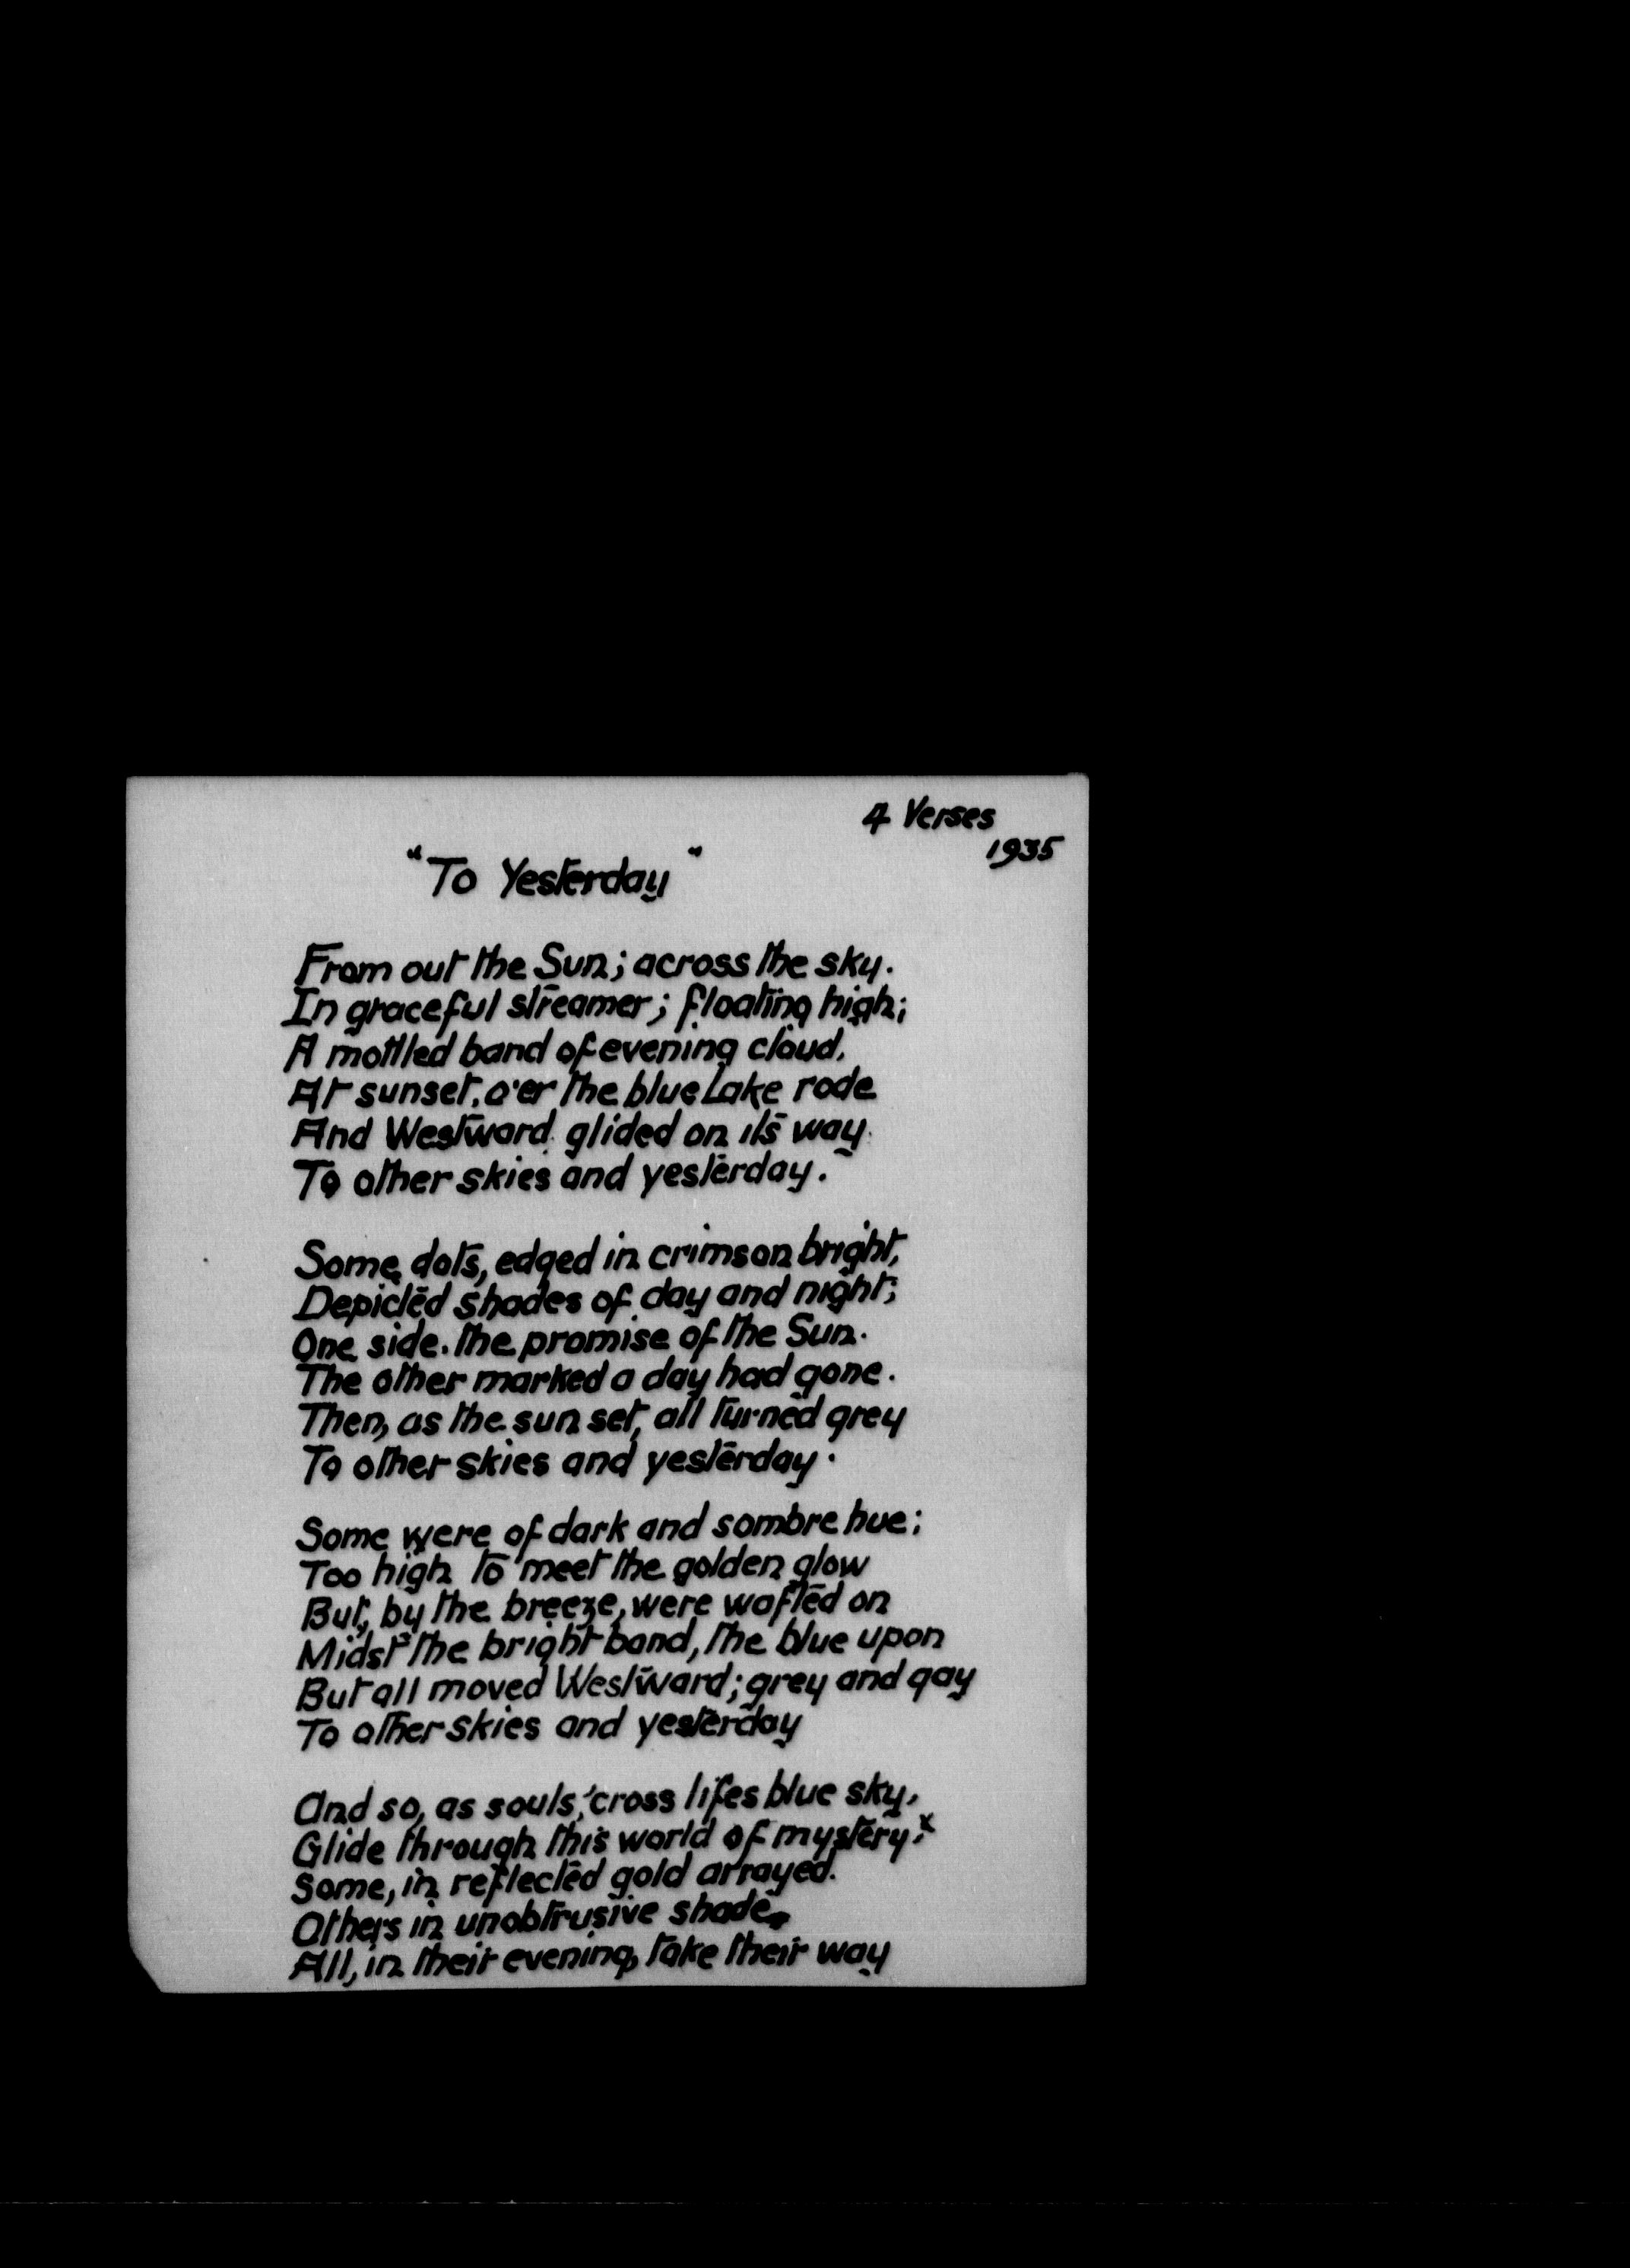 4 Verses
1935
"To Yesterday"
From out the Sun; across the sky.
In graceful streamer; floating high;
A mottled band of evening cloud,
At sunset. o'er the blue Lake rode
And Westward glided on its way.
To other skies and yesterday.
Some dots, edged in crimson bright,
Depicted shades of day and night;
One side. the promise of the Sun.
The other marked a day had gone.
Then, as the sun set, all turned grey
To other skies and yesterday.
Some were of dark and sombre hue;
Too high to meet the golden glow
But, by the breeze, were wafted on
Midst the bright band, the blue upon
But all moved Westward; grey and gay
To other skies and yesterday
And so, as souls, 'cross lifes blue sky,
Glide through this world of mystery; x
Some, in reflected gold arrayed.
Others in unobtrusive shade,
All, in their evening, take their way